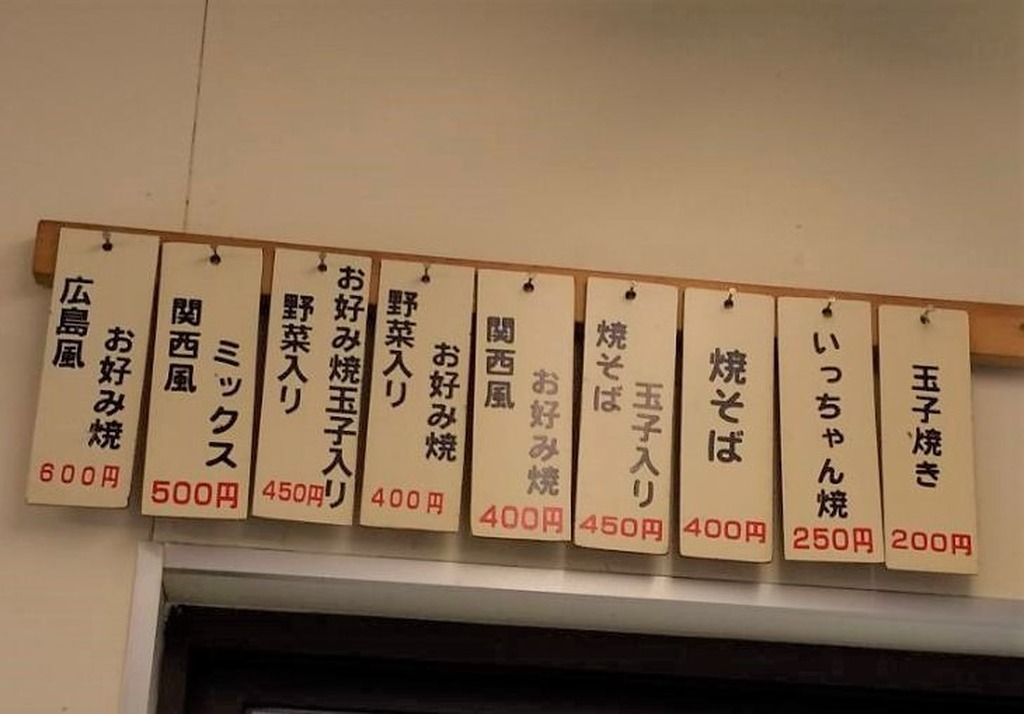 玉子焼き
200円
いっちゃん焼
250円
焼そば
400円
玉子入り
焼そば
450円
お好み焼
関西風
400円
お好み焼
野菜入り
400円
お好み焼玉子入り
野菜入り
450円
ミックス
関西風
500円
お好み焼
広島風
600円